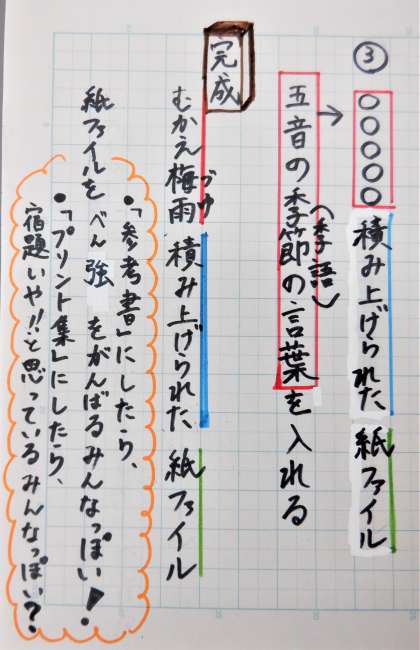 ③
○○○○○積み上げられた紙ファイル
→五音の季節の言葉を入れる
(季語)
完成
むかえ梅雨積み上げられた紙ファイル
づゆ
紙ファイルを
●「参考書」にしたら、
べん強をがんばるみんなっぽい!
●「プリント集」にしたら、
宿題いや!!と思っているみんなっぽい?